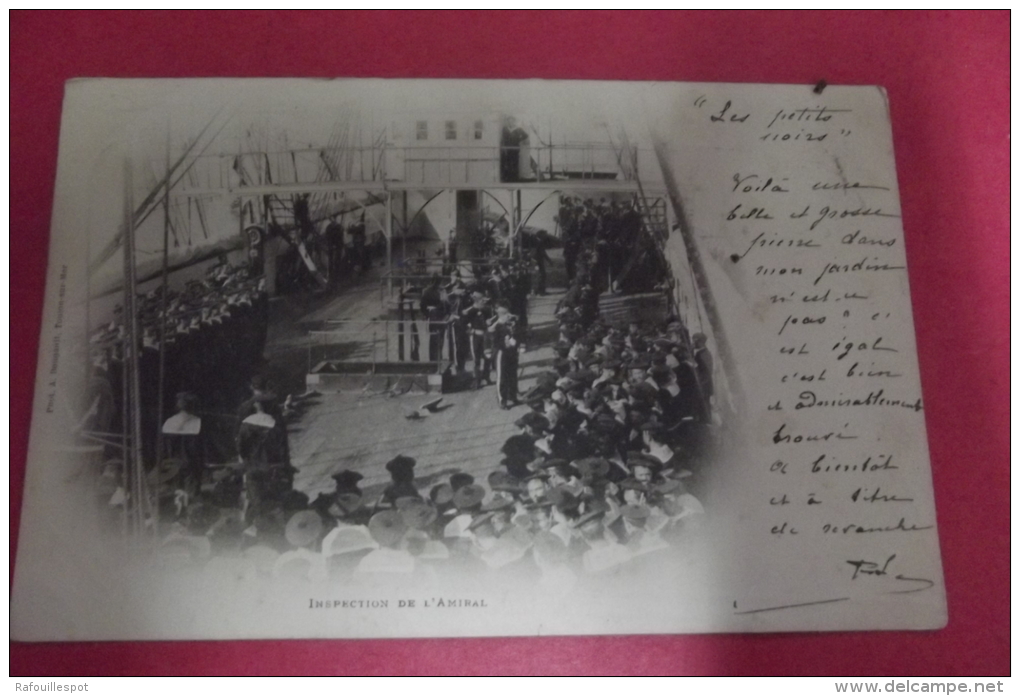 "Les petits
noirs"
Voilà une
belle et grosse
pierre dans
mon jardin
n'est-ce
pas? c'
est égal
c'est bien
et admirablement
trouvé
A bientôt
et à titre
de revanche
INSPECTION DE L'AMIRAL
1
Phot. A. Bougault, Toulon-sur-Mer
Rafouillespot
www.delcampe.net